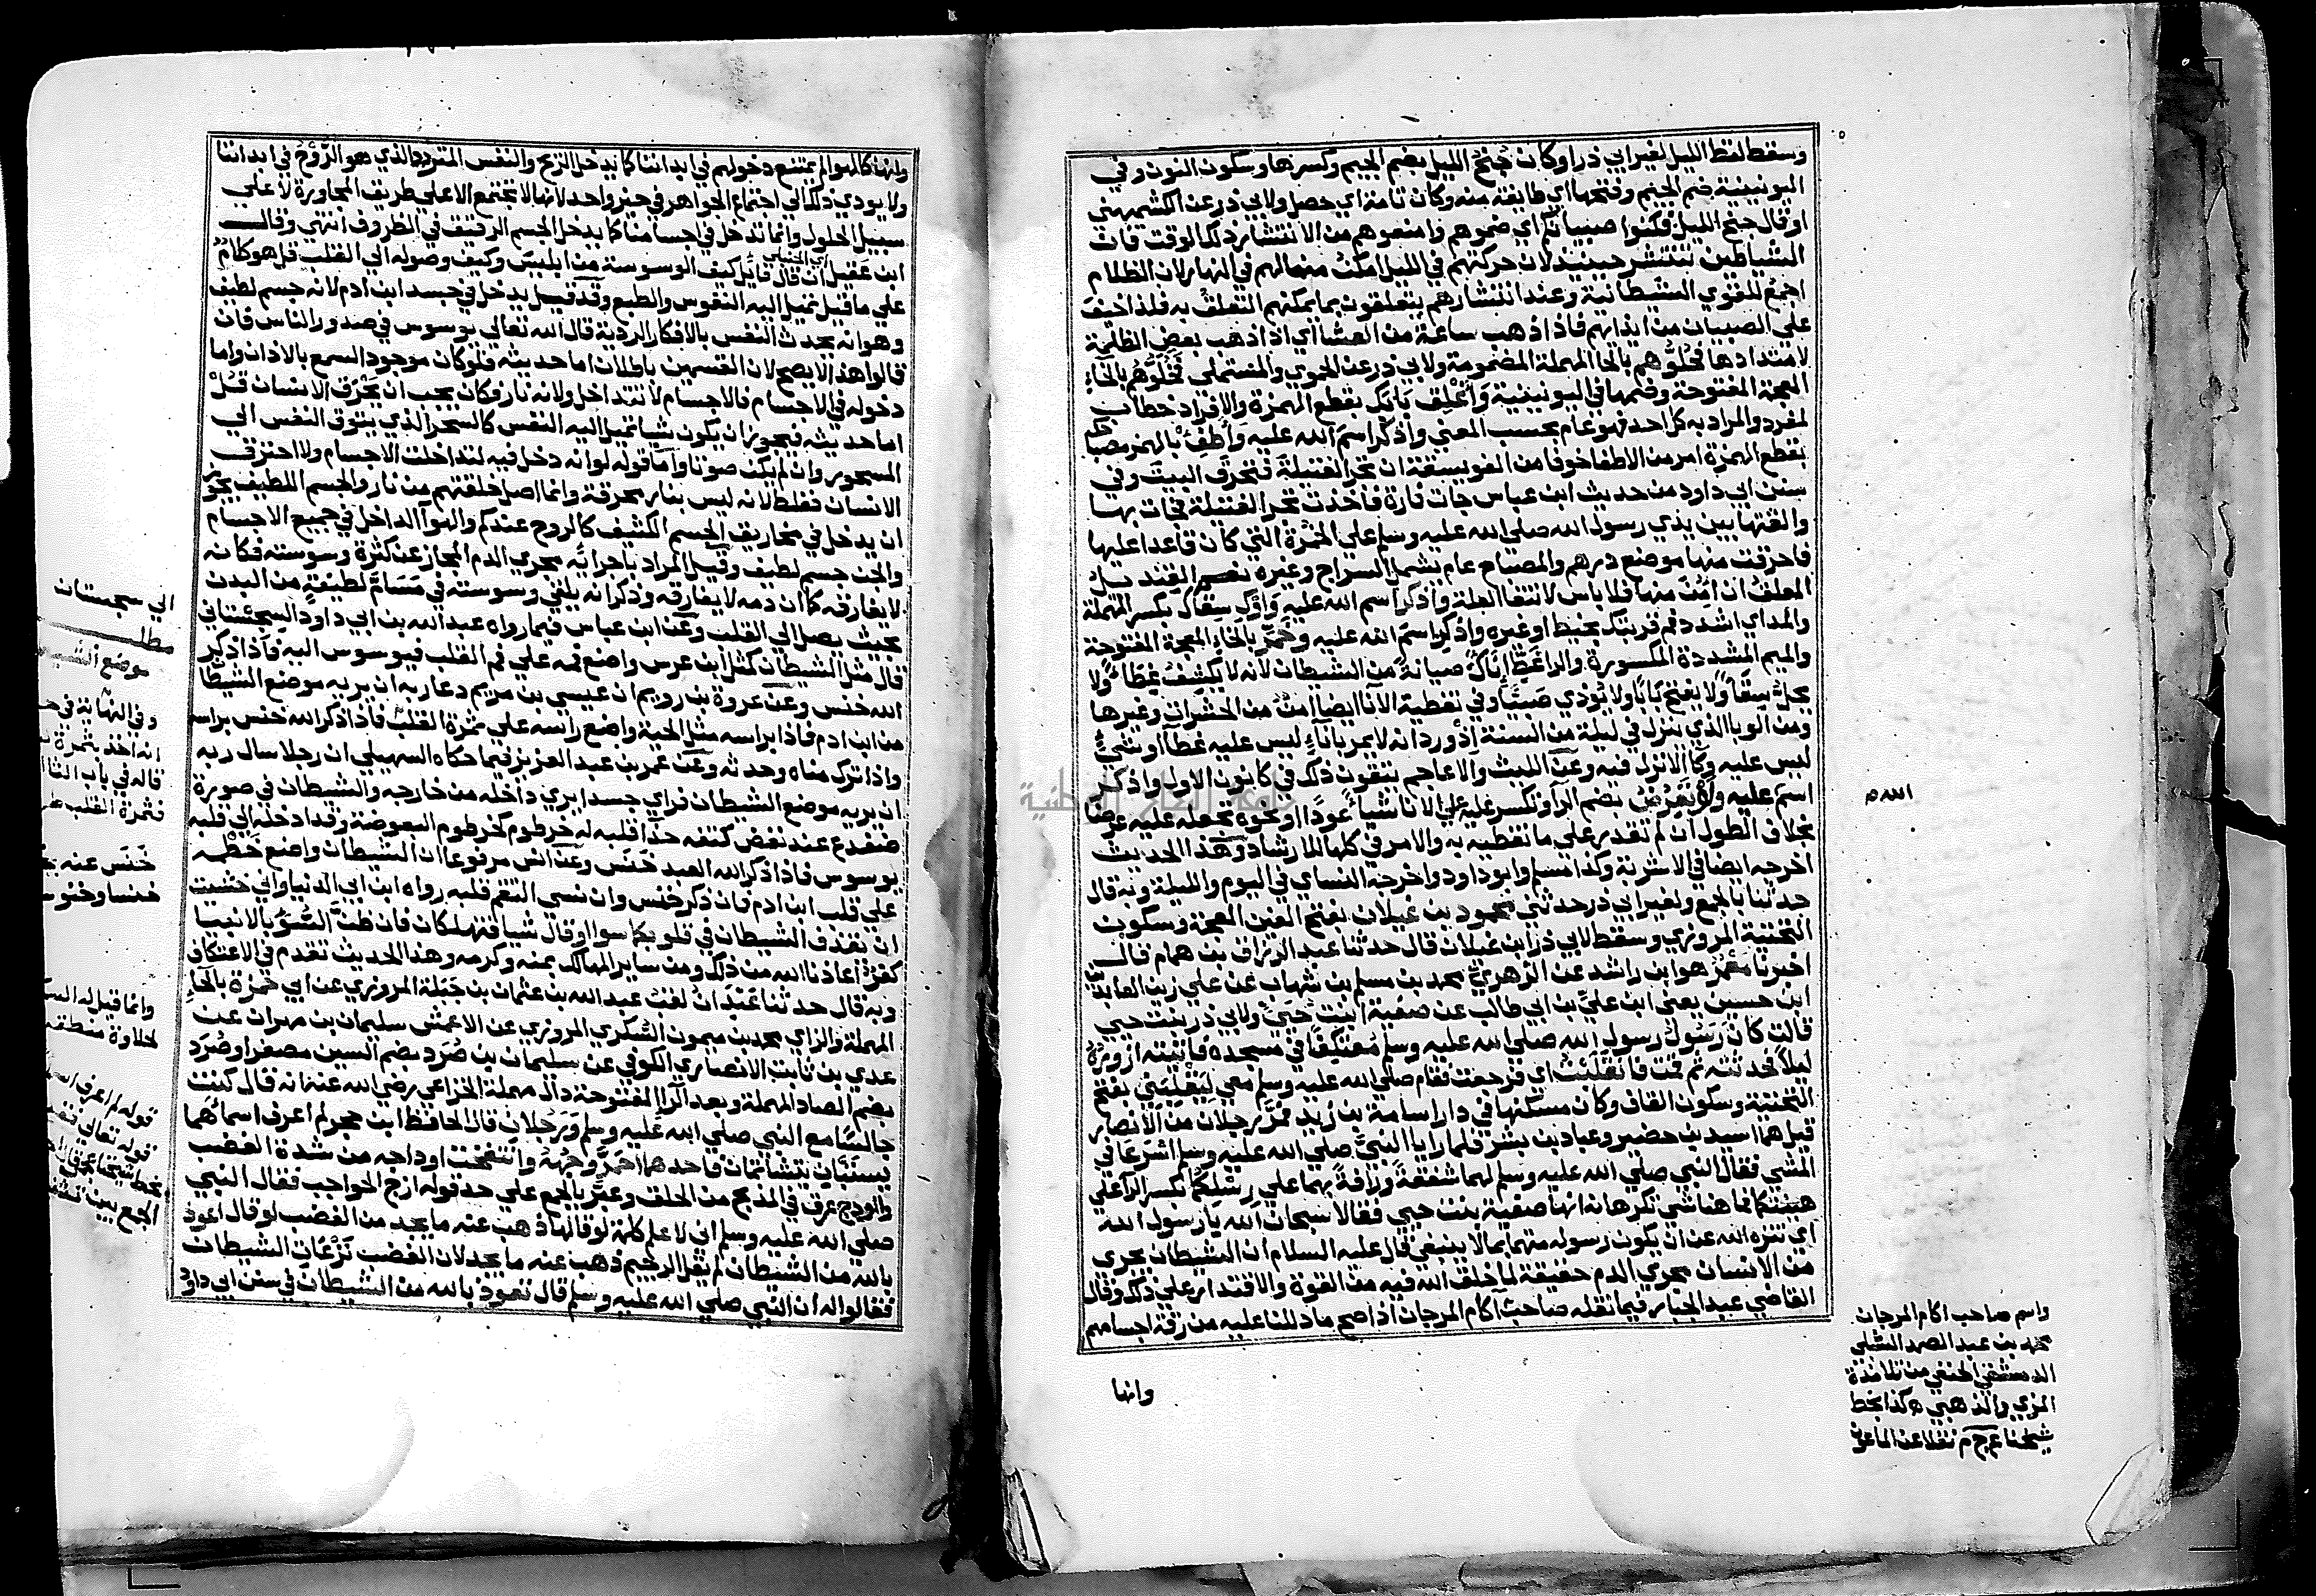 وسقط لفظ الليل لغير ابي ذر او كان جنح الليل بضم الجيم وكسرها وسكون النون وفي
اليونينية بضم الجيم وفتحها اي طايفة منه وكان تامة اي حصل ولابي ذر عن الكشميهني
او قال جنح الليل فكفوا صبيانكم اي ضموهم وامنعوهم من الانتشار ذلك الوقت فان
الشياطين تنتشر حينيذ لان حركتهم في الليل امكن منها لهم في النهار لان الظلام
اجمع للقوي الشيطانية وعند انتشارهم يتعلقون بما يمكنهم التعلق به فلذا خيف
علي الصبيان من ايذايهم فاذا ذهب ساعة من العشا اي اذا ذهب بعض الظلمة
لامتدادها فحلوهم بالحا المهملة المضمومة ولابي ذر عن الحموي والمستملي فخلوهم بالخاء
المعجمة المفتوحة وضمها في اليونينية واغلق بابك بقطع الهمزة والافراد خطاب
لمفرد والمراد به كل احد فهو عام بحسب المعني واذكر اسم الله عليه واطف بالهمز مصباحك
بقطع الهمزة امر من الاطفا خوفا من الفويسقة ان تجر الفتيلة فتحرق البيت وفي
سنن ابي داود من حديث ابن عباس جات فارة فاخذت تجر الفتيلة فجات بها
والقتها بين يدي رسول الله صلي الله عليه وسلم علي الخمرة التي كان قاعدا عليها
فاحرقت منها موضع درهم والمصباح عام يشمل السراج وغيره نعم القنديل
المعلق ان امن منها فلا باس لانتفا العلة واذكر اسم الله عليه واوك سقاك بكسر المهملة
والمد اي اشدد فم قربتك بخيط او غيره واذكر اسم الله عليه وخمر بالخاء المعجمة المفتوحة
والميم المشددة المكسورة والرا غط اناك صيانة من الشيطان لانه لا يكشف غطاء ولا
يحل سقاء ولا يفتح بابا ولا يؤذي صبيا وفي تغطية الانا ايضا امن من الحشرات وغيرها
ومن الوبا الذي ينزل في ليلة من السنة اذ ورد انه لا يمر باناء ليس عليه غطاء او شيء
ليس عليه وكا الا نزل فيه وعن الليث والاعاجم يتقون ذلك في كانون الاول واذكر
اسم عليه ولو تعرض بضم الرا وتكسر عليه علي الانا شيا عودا او نحوه تجعله عليه عرضا
بخلاف الطول ان لم تقدر علي ما تغطيه به والامر في كلها للارشاد وهذا الحديث
اخرجه ايضا في الاشربة وكذا مسلم وابو داود واخرجه النساي في اليوم والليلة وبه قال
حدثنا بالجمع ولغير ابي ذر حدثني محمود بن غيلان بفتح الغين المعجمة وسكون
التحتية المروزي وسقط لابي ذر ابن غيلان قال حدثنا عبد الرزاق بن همام قال
اخبرنا معمر هو ابن راشد عن الزهري محمد بن مسلم بن شهاب عن علي زين العابدين
ابن حسين يعني ابن علي بن ابي طالب عن صفية ابنت حيي ولابي ذر بنت حيي
قالت كان رسول رسول الله صلي الله عليه وسلم معتكفا في مسجده فاتيته ازوره
ليلا فحدثته ثم قمت فانقلبت اي فرجعت فقام صلي الله عليه وسلم معي ليقلبني بفتح
التحتية وسكون القاف وكان مسكنها في دار اسامة بن زيد فمر رجلان من الانصار
قيل هما اسيد بن حضير وعباد بن بشر فلما رايا النبي صلي الله عليه وسلم اسرعا في
المشي فقال النبي صلي الله عليه وسلم لهما شفقة ورافة بهما علي رسلكما بكسر الرا علي
هينتكما فما هنا شي تكرهانه انها صفية بنت حيي فقالا سبحان الله يا رسول الله
اي تنزه الله عن ان يكون رسوله متهما بما لا ينبغي قال عليه السلام ان الشيطان يجري
من الانسان مجري الدم حقيقة لما خلق الله فيه من القوة والاقتدار علي ذلك وقال
القاضي عبد الجبار فيما نقله صاحب آكام المرجان اذا صح ما دللنا عليه من رقة اجسامهم
وانها
الله م
واسم صاحب اكام المرجان
محمد بن عبد الصمد الشبلي
الدمشقي الحنفي من تلامذة
المزي والذهبي هكذا بخط
شيخنا
وانها كالهوا لم يمتنع دخولهم في ابداننا كما يدخل الريح والنفس المتردد الذي هو الروح في ابداننا
ولا يودي ذلك الي اجتماع الجواهر في حيز واحد لانها لا تجتمع الا علي طريق المجاورة لا علي
سبيل الحلول وانما تدخل في اجسامنا كما يدخل الجسم الرقيق في الظروف انتهي وقال
اي الحنبلي
ابن عقيل ان قال قايل كيف الوسوسة من ابليس وكيف وصوله الي القلب قل هو كلام
علي ما قيل تميل اليه النفوس والطبع وقد قيل يدخل في جسد ابن ادم لانه جسم لطيف
وهو انه يحدث النفس بالافكار الردية قال الله تعالي يوسوس في صدور الناس فان
قالوا هذا لا يصح لان القسمين باطلان اما حديثه فلو كان موجود السمع بالاذان واما
دخوله في الاجسام فالاجسام لا تتداخل ولانه نار فكان يجب ان يحرق الانسان قيل
اما حديثه فيجوز ان يكون شيا تميل اليه النفس كالسحر الذي يتوق النفس الي
المسحور وان لم يكن صوتا واما قوله لو انه دخل فيه لتداخلت الاجسام ولاحترق
الانسان فغلط لانه ليس بنار محرقة وانما اصل خلقتهم من نار والجسم اللطيف يجوز
ان يدخل في مخاريق الجسم الكثيف كالروح عندكم والهوا الداخل في جميع الاجسام
والجن جسم لطيف وقيل المراد باجرايه مجري الدم المجاز عن كثرة وسوسته فكانه
لا يفارقه كما ان دمه لا يفارقه وذكر انه يلقي وسوسته في مسام لطيفة من البدن
بحيث يصل الي القلب وعن ابن عباس فيما رواه عبد الله بن ابي داود السجستاني
قال مثل الشيطان كمثل ابن عرس واضع فمه علي فم القلب فيوسوس اليه فاذا ذكر
الله خنس وعن عروة بن رويم ان عيسي بن مريم دعا ربه ان يريه موضع الشيطان
من ابن ادم فاذا براسه مثل الحية واضع راسه علي ثمرة القلب فاذا ذكر الله خنس براسه
واذا ترك مناه وحدثه وعن عمر بن عبد العزيز فيما حكاه السهيلي ان رجلا سال ربه
ان يريه موضع الشيطان فراي جسدا يري داخله من خارجه والشيطان في صورة
ضفدع عند نغض كتفه حذا قلبه له خرطوم كخرطوم البعوضة وقد ادخله الي قلبه
يوسوس فاذا ذكر الله العبد خنس وعن انس مرفوعا ان الشيطان واضع خطمه
علي قلب ابن ادم فان ذكر خنس وان نسي التقم قلبه رواه ابن ابي الدنيا واني خشيت
ان يقذف الشيطان في قلوبكما سوا او قال شيا فتهلكان فان ظن السوء بالانبيا
كفر اعاذنا الله من ذلك ومن ساير المهالك بمنه وكرمه وهذا الحديث تقدم في الاعتكاف
وبه قال حدثنا عبدان لقب عبد الله بن عثمان بن جبلة المروزي عن ابي حمزة بالحاء
المهملة والزاي محمد بن ميمون السكري المروزي عن الاعمش سليمان بن مهران عن
عدي بن ثابت الانصاري الكوفي عن سليمان بن صرد بضم السين مصغرا وصرد
بضم الصاد المهملة وبعد الرا المفتوحة دال مهملة الخزاعي رضي الله عنه انه قال كنت
جالسا مع النبي صلي الله عليه وسلم ورجلان قال الحافظ ابن حجر لم اعرف اسمائهما
يستبان يتشاتمان فاحدهما احمر وجهه وانتفخت اوداجه من شدة الغضب
والودج عرق في المذبح من الحلق وعبر بالجمع علي حد قوله ازج الحواجب فقال النبي
صلي الله عليه وسلم اني لاعلم كلمة لو قالها ذهب عنه ما يجد من الغضب لو قال اعوذ
بالله من الشيطان لم يقل الرجيم ذهب عنه ما يجد لان الغضب نزغات الشيطان
فقالوا له ان النبي صلي الله عليه وسلم قال تعوذ بالله من الشيطان في سنن ابي داود
الي سجستان
مطلب
موضع الشيطان
وفي النهاية في
انه اخذ بثمرة
قاله في باب الثا
فثمرة القلب
خنس عنه
خنسا وخنو
وانما قيل له السكر
لحلاوة منطقه
قوله لم اعرف
قوله تعالي
بخط شيخنا
الجمع بين